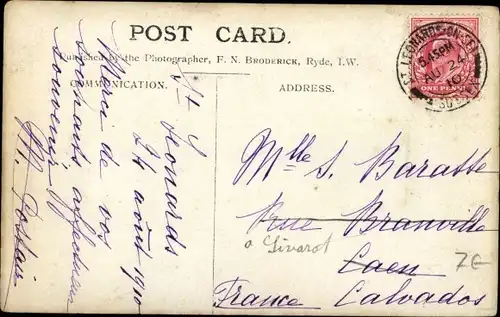 POST CARD.
Published by the Photographer, F. N. BRODERICK, Ryde, I.W.
COMMUNICATION.
ADDRESS.
ST LEONARDS-ON-SEA
5.45 PM
AU 24
10
SUSSEX
ONE PENNY
St Leonards
24 août 1910
Merci de vos
souhaits affectueux
souvenir
Mlle S. Baratte
Rue Branville
a Livarot
Caen
France Calvados
7E